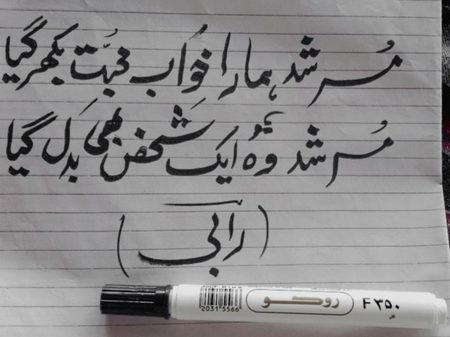 مُرشد ہمارا خوَاب محبّت بکھر گیا
مُرشد وُہ ایک شخص بھی بدَل گیا
(رابی)
روکو F ۳۵۰
20313566